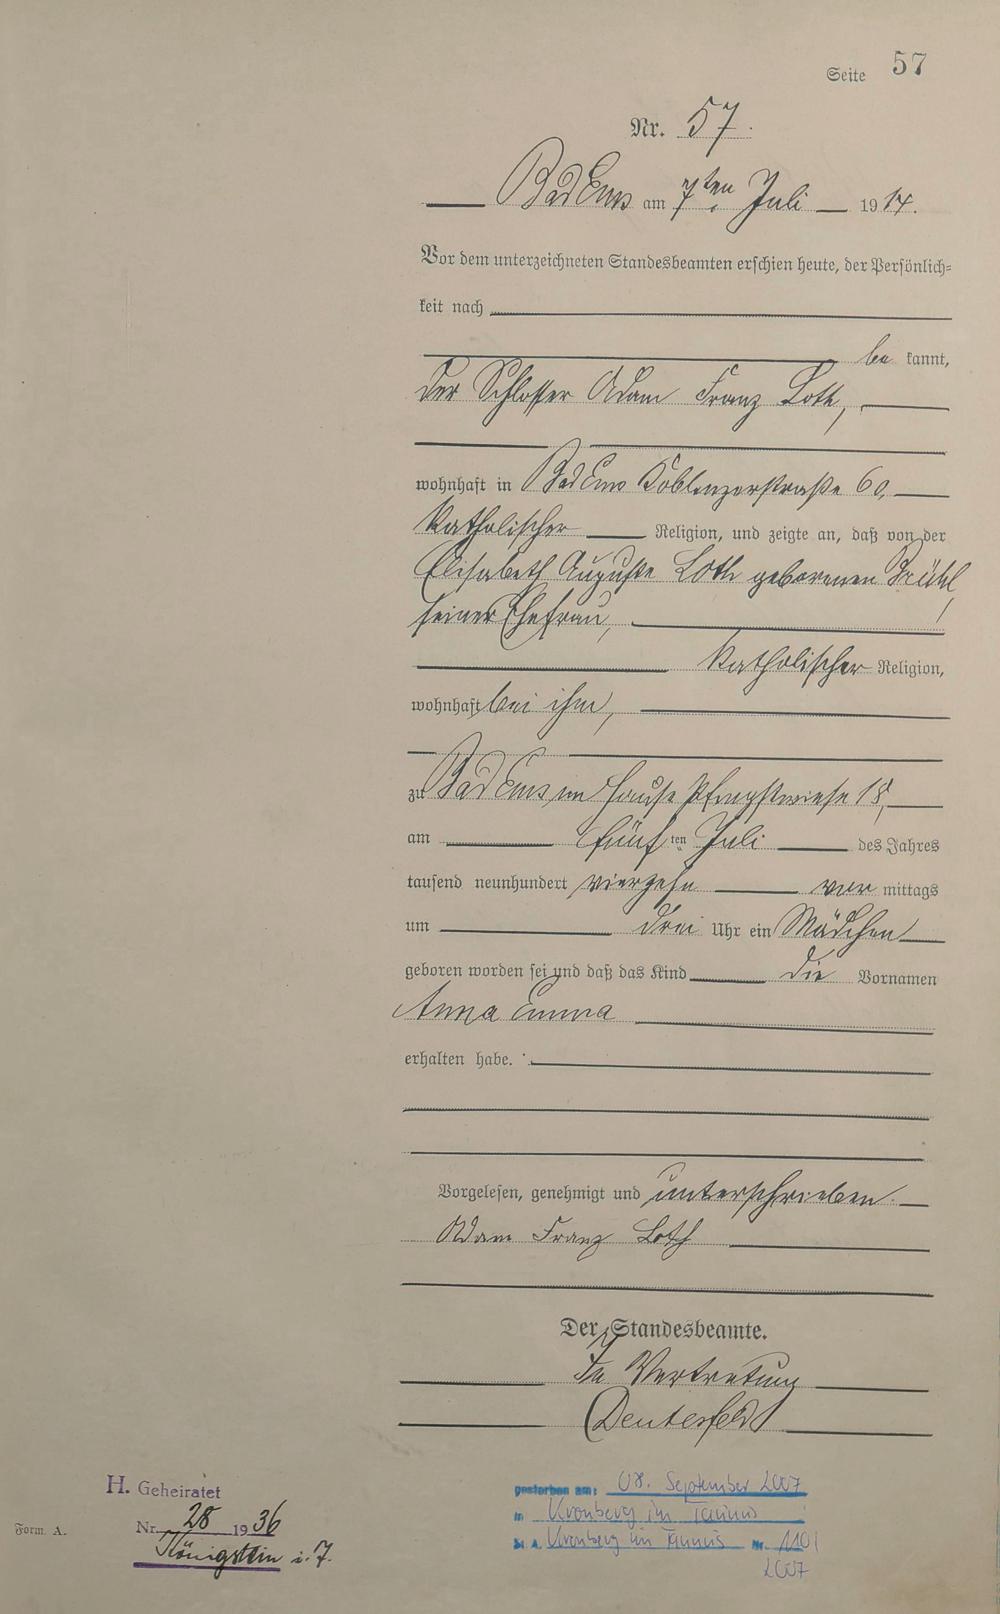 Seite 57
Nr. 57.
Bad Ems am 7ten Juli 1914.
Vor dem unterzeichneten Standesbeamten erschien heute, der Persönlich-
keit nach
be kannt,
der Schlosser Adam Franz Loth,
wohnhaft in Bad Ems Koblenzerstraße 60,
katholischer Religion, und zeigte an, daß von der
Elisabeth Auguste Loth geborenen Brühl,
seiner Ehefrau,
katholischer Religion,
wohnhaft bei ihm,
zu Bad Ems im Hause Pfingstwiese 18,
am fünf ten Juli des Jahres
tausend neunhundert vierzehn vor mittags
um drei Uhr ein Mädchen
geboren worden sei und daß das Kind die Vornamen
Anna Emma
erhalten habe.
Vorgelesen, genehmigt und unterschrieben.
Adam Franz Loth
Der Standesbeamte.
In Vertretung
H. Geheiratet
Nr. 28 1936
Königstein i. T.
Form. A.
gestorben am: 08. September 2007
in Kronberg im Taunus
St. A. Kronberg im Taunus Nr. 110/
2007